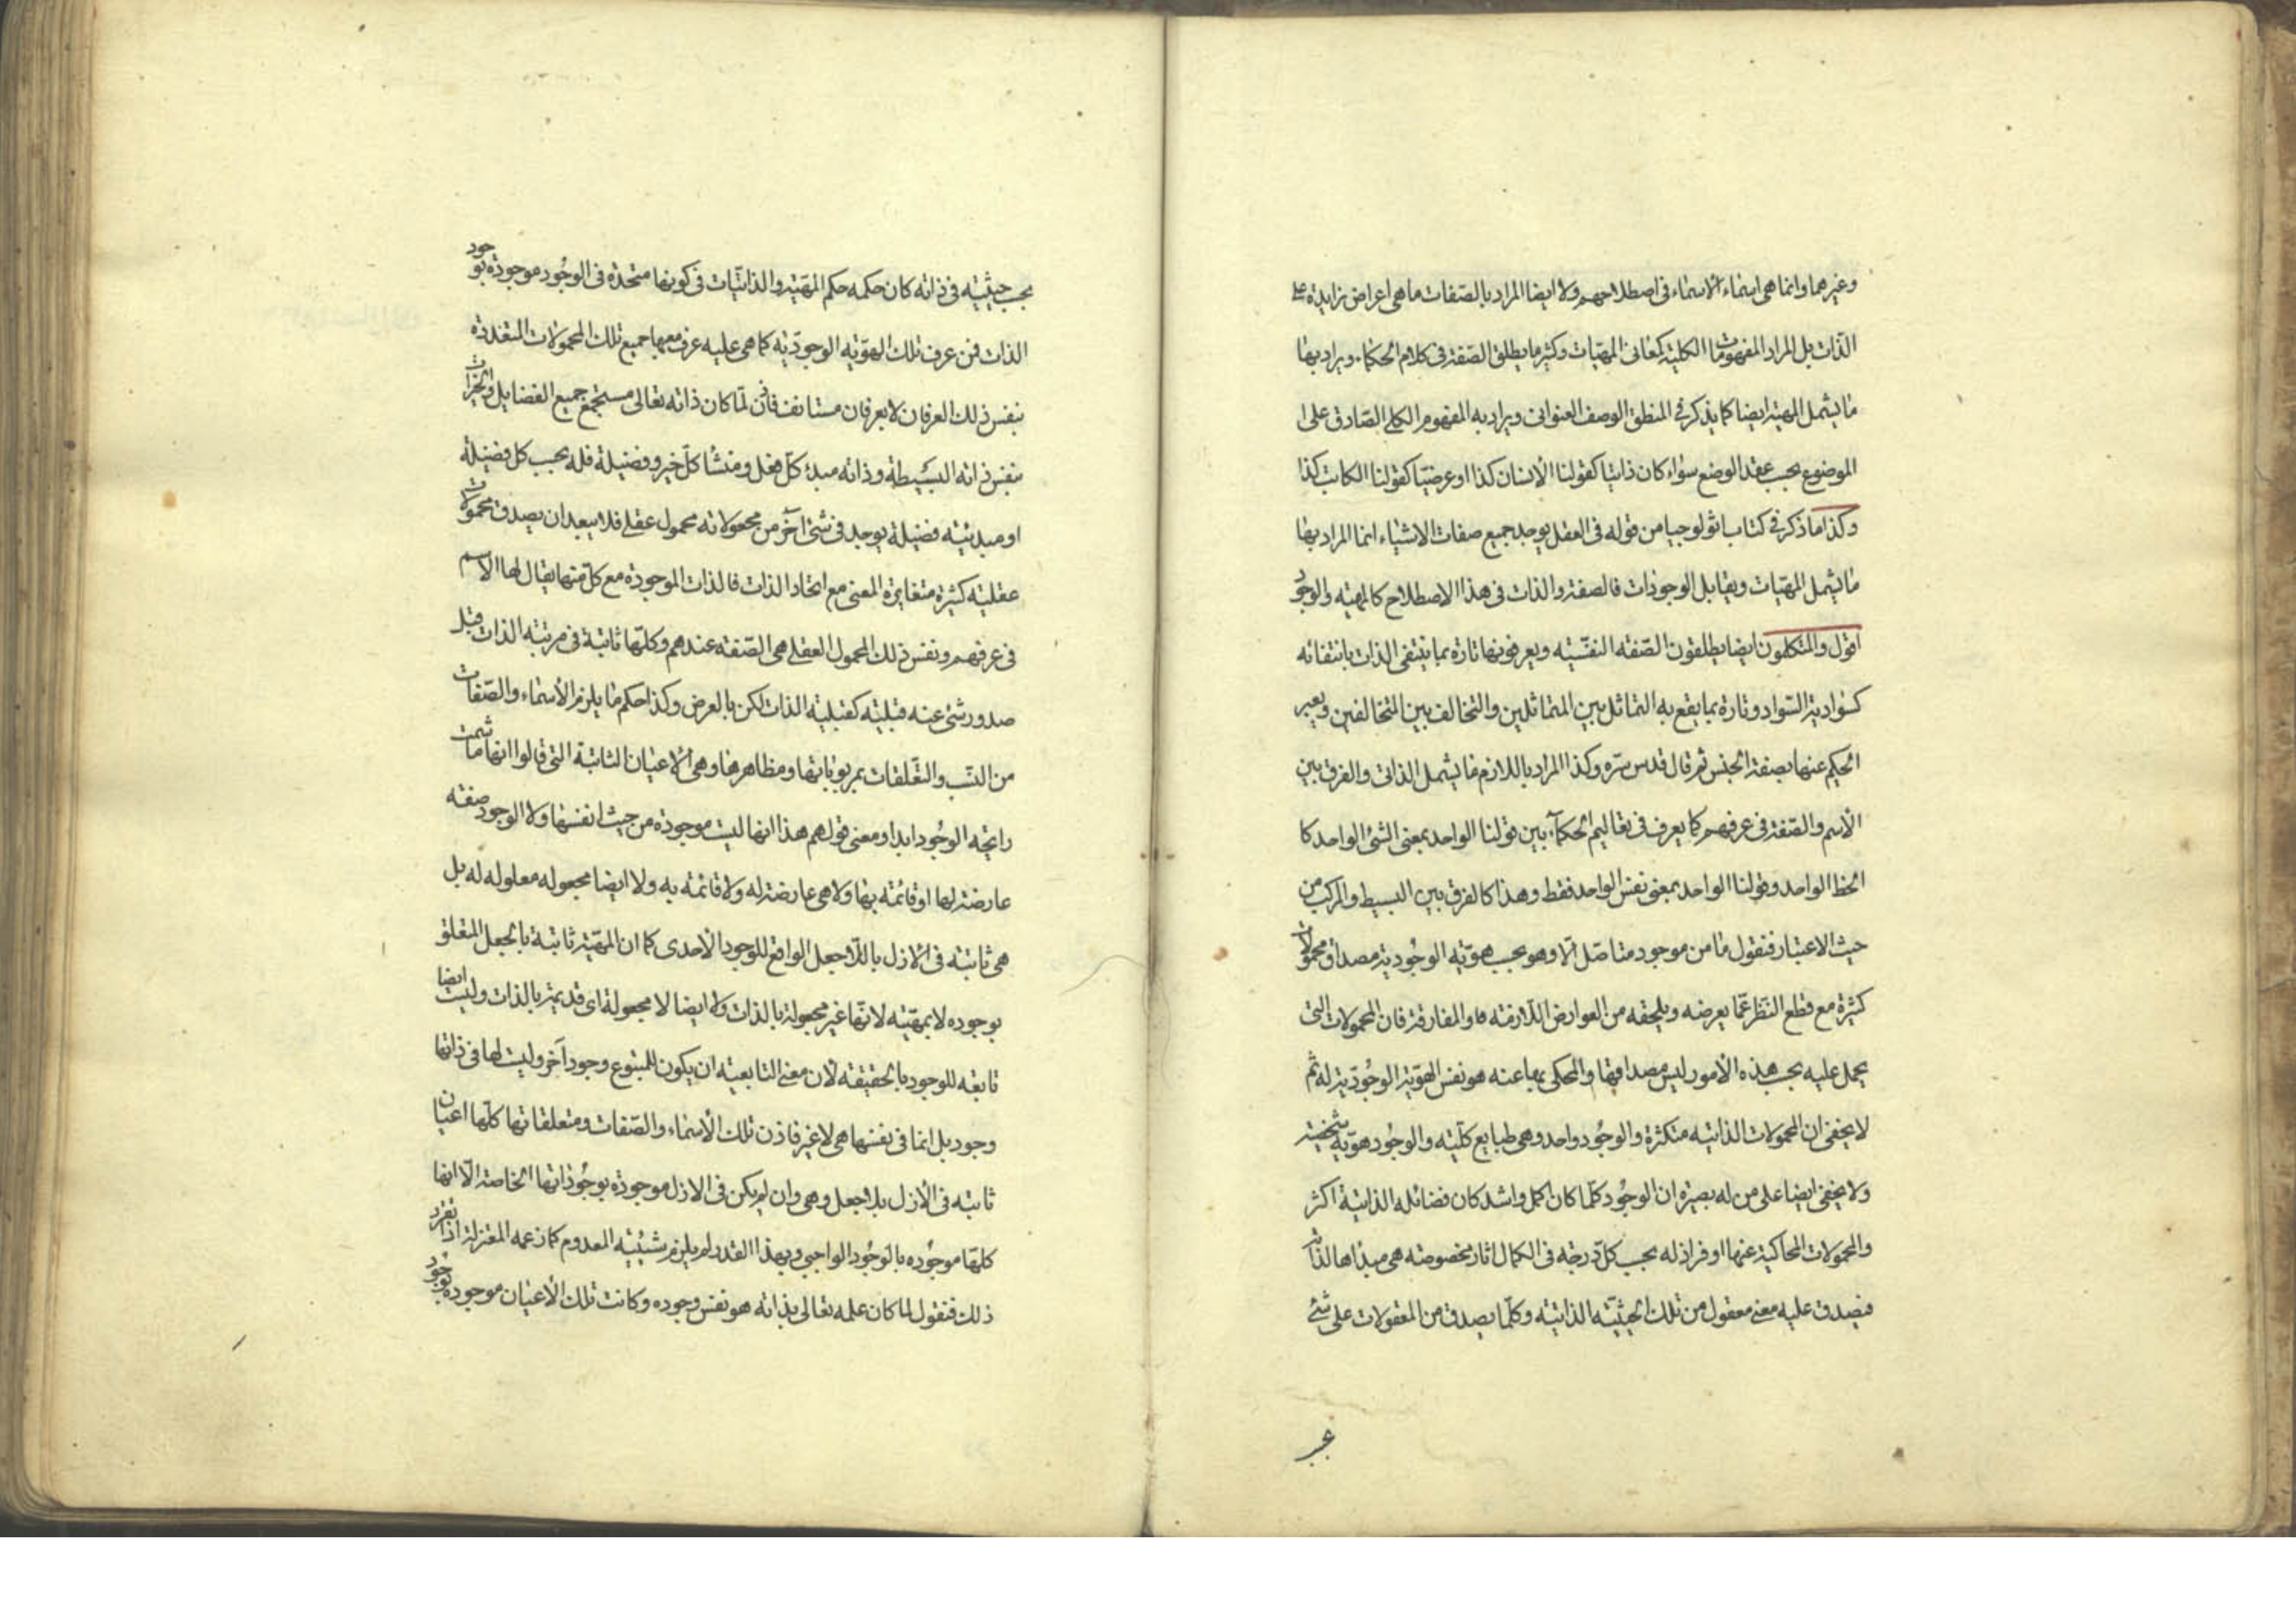 وغيرهما وانما هى اسماء الاسماء فى اصطلاحهم ولا ايضا المراد بالصّفات ما هى اعراض زايدة على
الذّات بل المراد المفهومات الكلية كمعانى المهيّات وكثير ما يطلق الصّفة فى كلام الحكماء ويراد بها
ما يشمل المهية ايضا كما يذكر فى المنطق الوصف العنوانى ويراد به المفهوم الكلى الصّادق على
الموضوع بحسب عقد الوضع سواء كان ذاتيا كقولنا الانسان كذا او عرضيّا كقولنا الكاتب كذا
وكذا ما ذكر فى كتاب اثولوجيا من قوله فى العقل يوجد جميع صفات الاشياء انما المراد بها
ما يشمل المهيّات ويقابل الوجودات فالصفة والذات فى هذا الاصطلاح كالمهيه والوجود
اقول والمتكلمون ايضا يطلقون الصّفه النفسّيه ويعرفونها تارة بما ينتفى الذات بانتفائه
كسوادية السّواد وتارة بما يقع به التماثل بين المتماثلين والتخالف بين المتخالفين ويعبر
الحكيم عنها بصفة الجنس ثم قال قدس سرّه وكذا المراد باللازم ما يشمل الذاتى والفرق بين
الاسم والصّفة فى عرفهم كما يعرف فى تعاليم الحكمآء بين قولنا الواحد بمعنى الشئ الواحد كا
الخط الواحد وقولنا الواحد بمعنى نفس الواحد فقط وهذا كالفرق بين البسيط والمركب من
حيث الاعتبار فنقول ما من موجود متاصّل الّا وهو بحسب هويّته الوجُوديّة مصداق محمولات
كثيرة مع قطع النّظر عمّا يعرضه ويلحقه من العوارض اللّازمة والمفارقة فان المحمولات التى
يحمل عليه بحسب هذه الامور ليس مصداقها والمحكى بها عنه هو نفس الهويّة الوجُوديّة له ثم
لا يخفى ان المحمولات الذاتيه متكثرة والوجُود واحد وهى طبايع كلّيته والوجُود هويّة شخصيّة
ولا يخفى ايضا على من له بصيرة ان الوجُود كلّما كان اكمل واشد كان فضائله الذاتية اكثر
والمحمولات المحاكية عنها اوفر اذ له بحسب كلّ درجه فى الكمال اثار مخصوصه هى مبداها لذاته
فيصدق عليه معنى معقول من تلك الحيثيّة الذاتيّه وكلّما يصدق من المعقولات على شئ
بحسب حيثيّته فى ذاته كان حكمه حكم المهيّة والذاتيّات فى كونها متحدة فى الوجُود موجودة بوجود
الذات فمن عرف تلك الهويّة الوجوديّة كما هى عليه عرف معها جميع تلك المحمولات المتعددة
بنفس ذلك العرفان لا بعرفان مستانف فاذن لمّا كان ذاته تعالى مستجمع جميع الفضايل والخيرات
بنفس ذاته البسيطة وذاته مبدء كلّ فعل ومنشأ كلّ خير وفضيلة فله بحسب كل فضيلة
او مبدئيّه فضيلة يوجد فى شئ آخر من مجعولاته محمول عقلى فلا يبعد ان يصدق محمولات
عقليّه كثيرة متغايرة المعنى مع اتحاد الذات فالذات الموجودة مع كلّ منها يقال لها الاسم
فى عرفهم ونفس ذلك المحمول العقلى هى الصّفة عندهم وكلّها ثابتة فى مرتبة الذات قبل
صدور شئ عنه قبليّه كقبلية الذات لكن بالعرض وكذا حكم ما يلزم الاسماء والصّفات
من النسب والتعّلقات بمربوباتها ومظاهرها وهى الاعيان الثابتة التى قالوا انها ما شمت
رايحه الوجُود ابدا ومعنى قولهم هذا انها ليست موجودة من حيث انفسها ولا الوجود صفة
عارضة لها او قائمة بها ولا هى عارضة له ولا قائمة به ولا ايضا مجعوله معلوله له بل
هى ثابته فى الازل باللّا جعل الواقع للوجود الاحدى كما ان المهيّة ثابتة بالجعل المتعلق
بوجوده لا بمهيّته لانّها غير مجعولة بالذات ولا ايضا لا مجعولة اى قديمة بالذات وليست ايضا
تابعه للوجود بالحقيقه لان معنى التابعية ان يكون للمتبوع وجود آخر وليست لها فى ذاتها
وجود بل انما فى نفسها هى لا غير فاذن تلك الاسماء والصّفات ومتعلقاتها كلّها اعيان
ثابته فى الازل بلا جعل وهى وان لم يكن فى الازل موجودة بوجُوداتها الخاصة الّا انها
كلهّا موجُوده بالوجُود الواجبى وبهذا القدر لم يلزم شيئيّه المعدوم كما زعمه المعتزلة اذا تقرر
ذلك فنقول لما كان علمه تعالى بذاته هو نفس وجوده وكانت تلك الاعيان موجوده بوجود